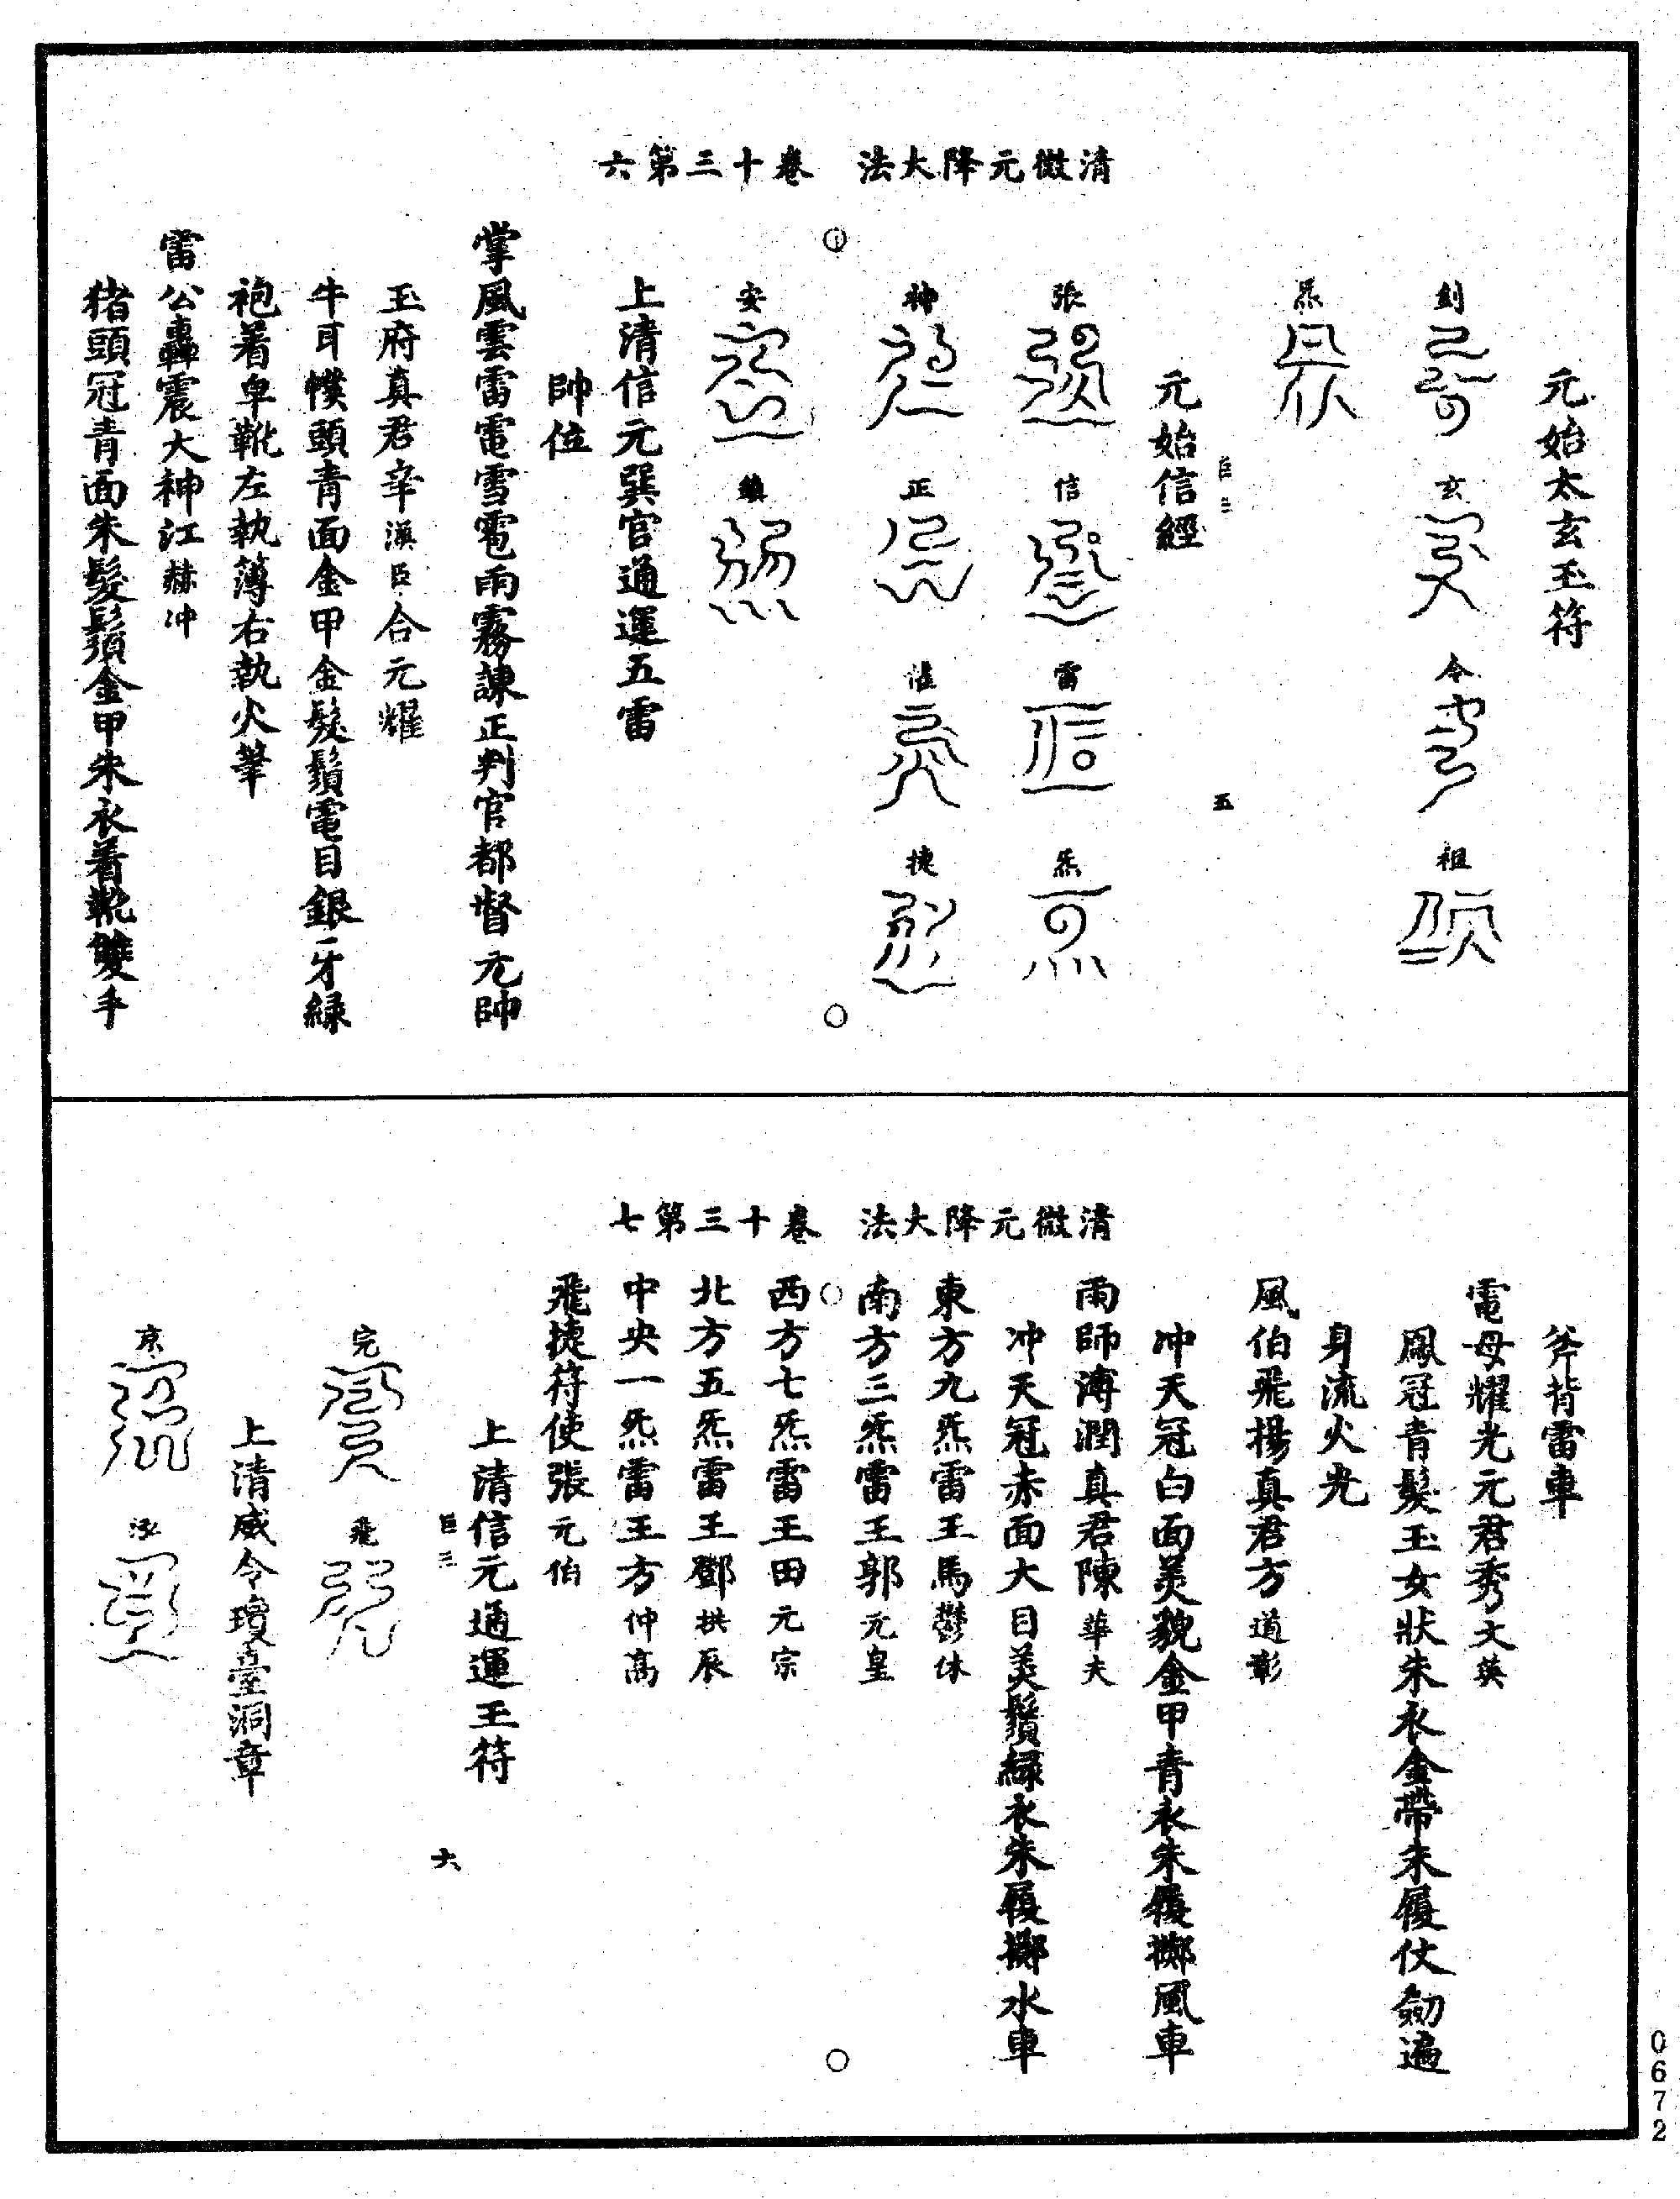 清微元降大法　卷十三第六
元始太玄玉符
劍　玄　令　祖
炁
元始信經
臣三　五
張　信　雷　炁
神　正　捷
安　鎮
上清信元巽官通運五雷
帥位
掌風雲雷電雪雹雨霧諫正判官都督元帥
玉府真君辛漢臣合元耀
牛耳幞頭青面金甲金髮鬚電目銀牙綠
袍着皁靴左執簿右執火筆
雷公轟震大神江赫冲
猪頭冠青面朱髮鬚金甲朱衣着靴雙手
清微元降大法　卷十三第七
斧背雷車
電母耀光元君秀文英
鳳冠青髮玉女狀朱衣金帶朱履仗劒遍
身流火光
風伯飛揚真君方道彰
冲天冠白面美貌金甲青衣朱履擲風車
雨師溥潤真君陳華夫
冲天冠赤面大目美鬚綠衣朱履擲水車
東方九炁雷王馬鬱休
南方三炁雷王郭元皇
西方七炁雷王田元宗
北方五炁雷王鄧拱辰
中央一炁雷王方仲高
飛捷符使張元伯
上清信元通運王符
臣三　六
完　飛
上清威令瓊臺洞章
京　泓
0672